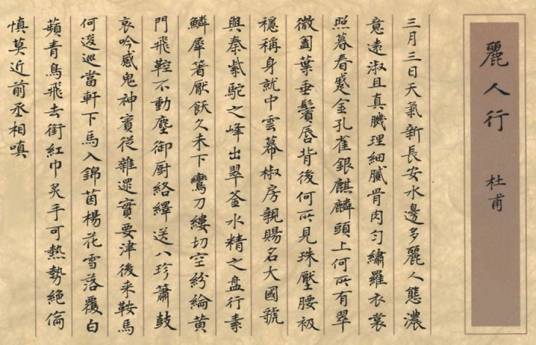 麗人行
杜甫
三月三日天氣新長安水邊多麗人態濃
意遠淑且真肌理細膩骨肉勻繡羅衣裳
照暮春蹙金孔雀銀麒麟頭上何所有翠
微㔩葉垂鬢唇背後何所見珠壓腰衱
穩稱身就中雲幕椒房親賜名大國虢
與秦紫駝之峰出翠釜水精之盤行素
鱗犀箸厭飫久未下鸞刀縷切空紛綸黃
門飛鞚不動塵御厨絡繹送八珍簫鼓
哀吟感鬼神賓從雜遝實要津後來鞍馬
何逡巡當軒下馬入錦茵楊花雪落覆白
蘋青鳥飛去銜紅巾炙手可熱勢絕倫
慎莫近前丞相嗔